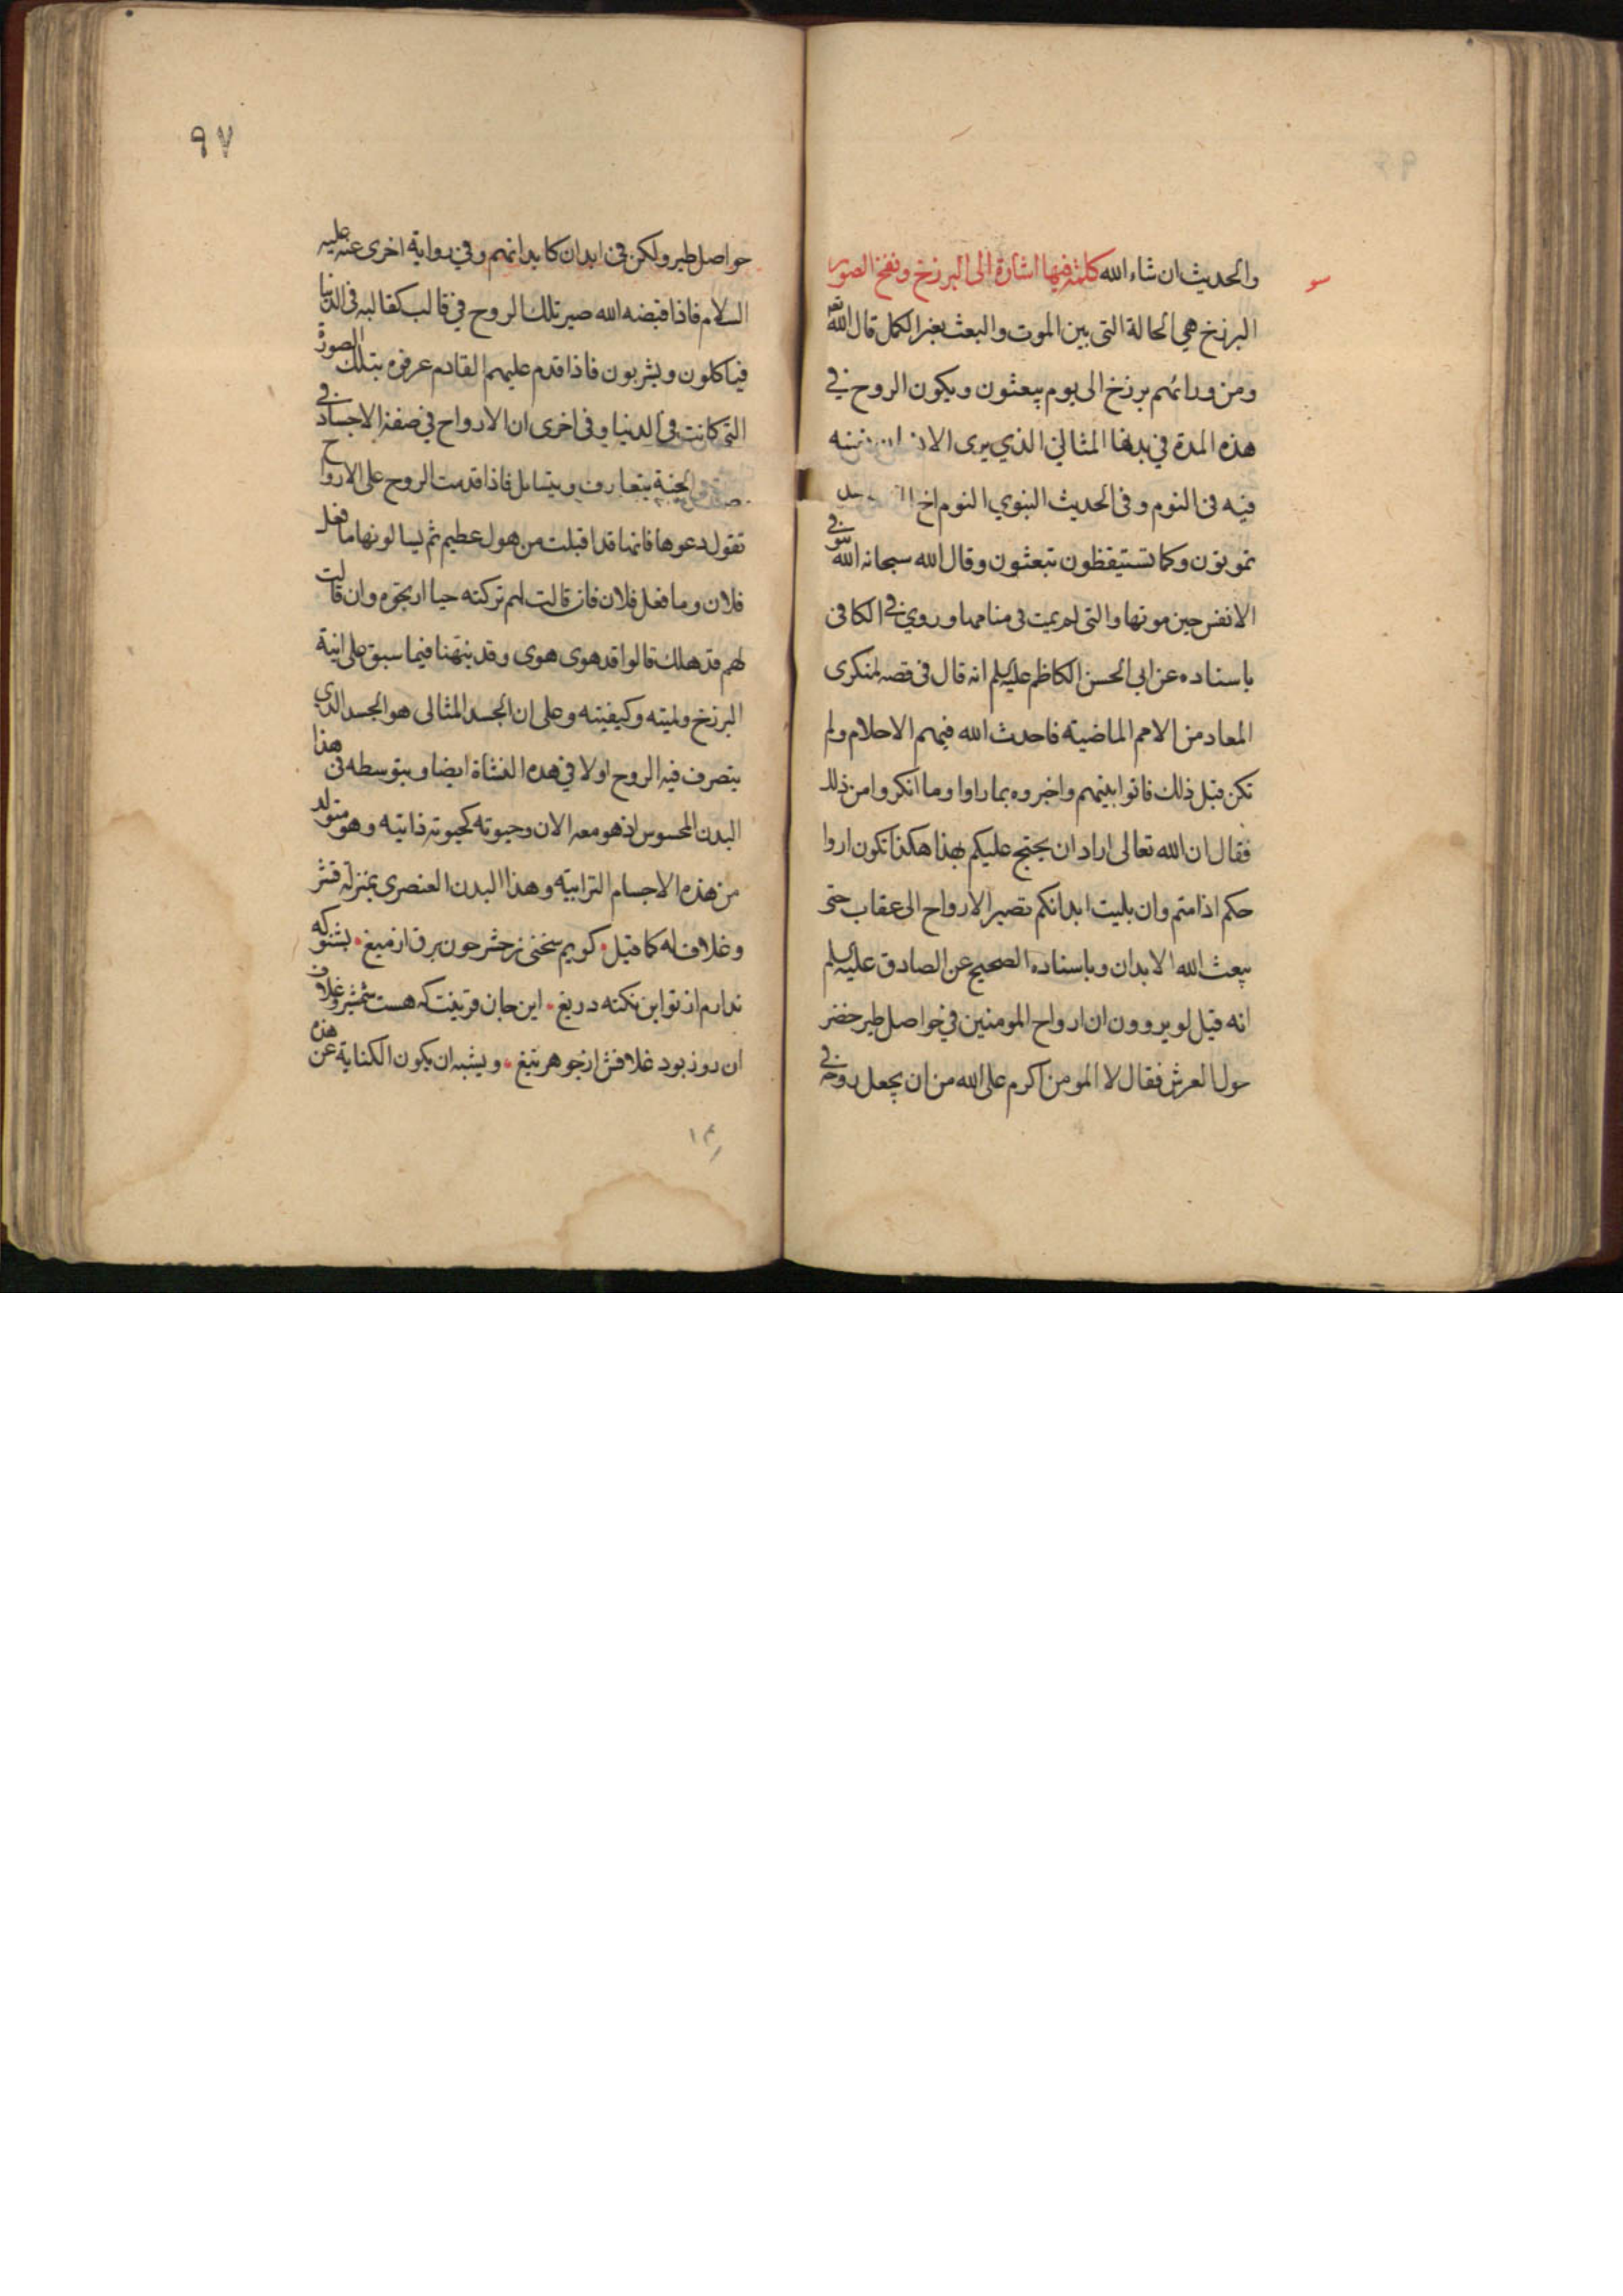 والحديث ان شاء الله كلمة فيها اشارة الى البرزخ ونفخ الصور
البرزخ هي الحالة التي بين الموت والبعث بغير الكمل قال الله تعه
ومن ورائهم برزخ الى يوم يبعثون ويكون الروح في
هذه المدة في بدنها المثالي الذي يرى الانسان نفسه
فيه في النوم وفي الحديث النبوي النوم اخ
تموتون وكما تستيقظون تبعثون وقال الله سبحانه الله يتوفى
الانفس حين موتها والتي لم يمت في منامها وروي في الكافي
باسناده عن ابي الحسن الكاظم عليه السلم انه قال في قصه لمنكرى
المعاد من الامم الماضية فاحدث الله فيهم الاحلام ولم
تكن قبل ذلك فاتوا بينهم واخبروه بما راوا وما انكروا من ذلك
فقال ان الله تعالى اراد ان يحتج عليكم بهذا هكذا تكون اروا
حكم اذا متم وان بليت ابدانكم تصير الارواح الى عقاب حتى
يبعث الله الابدان وباسناده الصحيح عن الصادق عليه السلم
انه قيل لو يروون ان ارواح المومنين في حواصل طير خضر
حول العرش فقال لا المومن اكرم على الله من ان يجعل روحه في
٩٧
حواصل طير ولكن في ابدان كابدانهم وفي رواية اخرى عنه عليه
السلام فاذا قبضه الله صير تلك الروح في قالب كقالبه في الدنيا
فياكلون ويشربون فاذا قدم عليهم القادم عرفوه بتلك الصورة
التي كانت في الدنيا وفي اخرى ان الارواح في صفة الاجساد في
الجنة يتعارف ويتسايل فاذا قدمت الروح على الاروا ح
تقول دعوها فانها قد اقبلت من هول عظيم ثم يسالونها ما فعل
فلان وما فعل فلان فان قالت لهم تركته حيا ارتجوه وان قالت
لهم قد هلك قالوا قد هوى هوى وقد نبهنا فيما سبق على انية
البرزخ ولميته وكيفيته وعلى ان الجسد المثالى هو الجسد الذي
يتصرف فيه الروح اولا في هذه النشاة ايضا وبتوسطه في هذا
البدن المحسوس اذ هو معه الان وحيوته كحيوته ذاتيه وهو متولد
من هذه الاجسام الترابيه وهذا البدن العنصرى بمنزلة قشر
وغلاف له كما قيل كويم سخنى زحشر جون برق از ميغ بشنو كه
ندارم از تو اين نكته دريغ اين جان وتنت كه هست شمشير وغلاف
ان روز بود غلافش از جوهر تيغ ويشبه ان يكون الكناية عن هذه